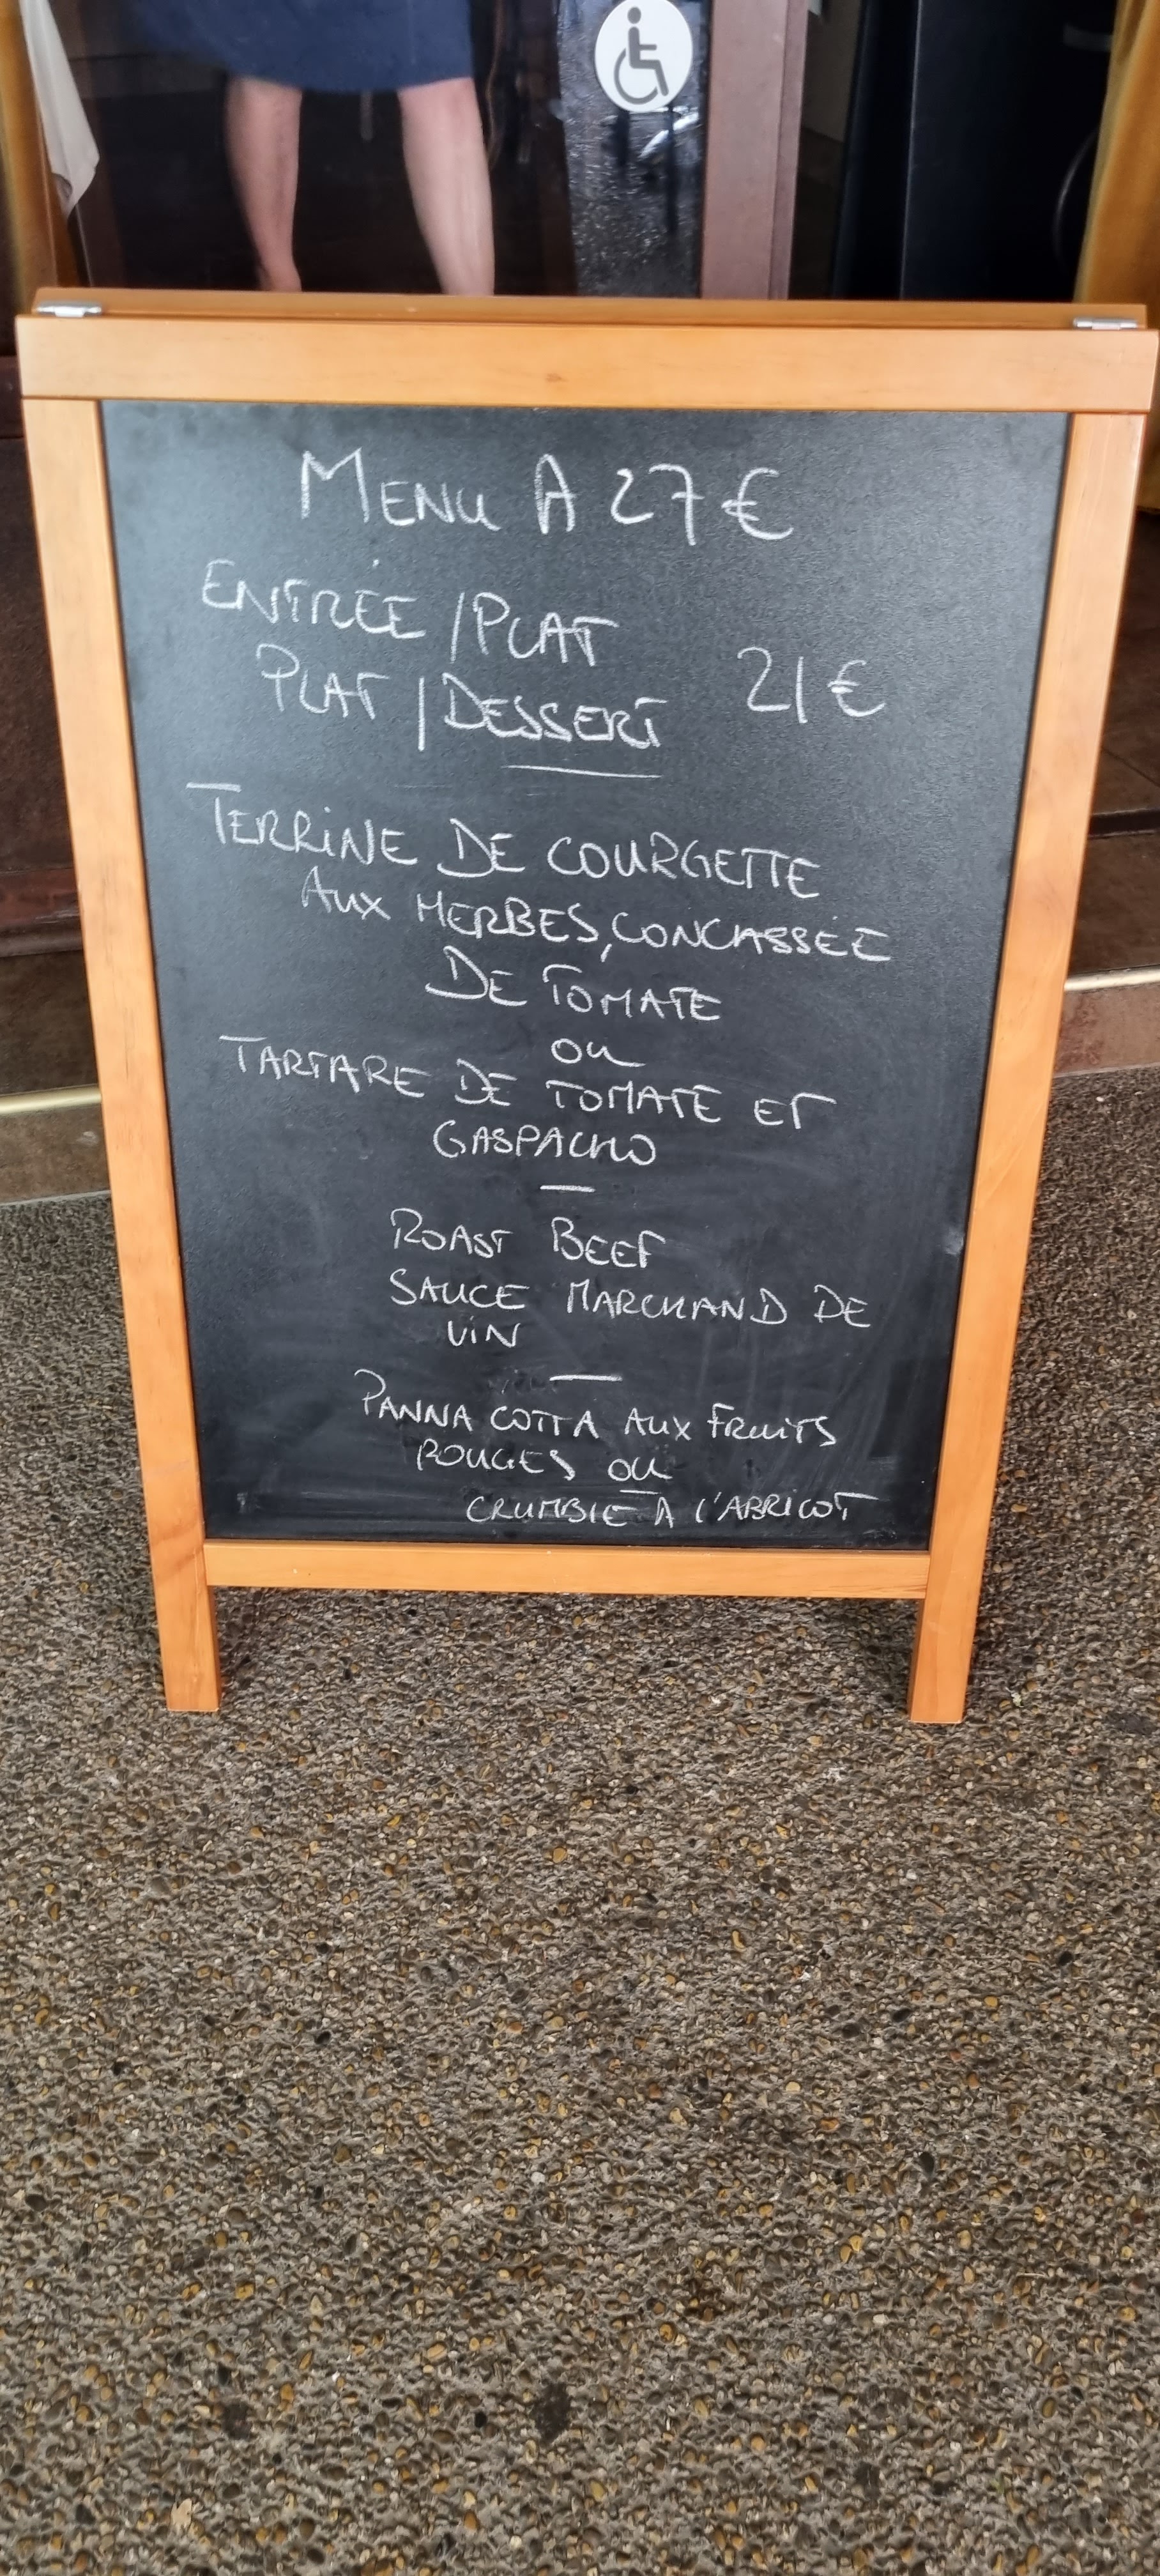 MENU A 27€
ENTRÉE / PLAT
PLAT / DESSERT 21€
TERRINE DE COURGETTE
AUX HERBES, CONCASSÉE
DE TOMATE
OU
TARTARE DE TOMATE ET
GASPACHO
ROAST BEEF
SAUCE MARCHAND DE
VIN
PANNA COTTA AUX FRUITS
ROUGES OU
CRUMBLE A L'ABRICOT